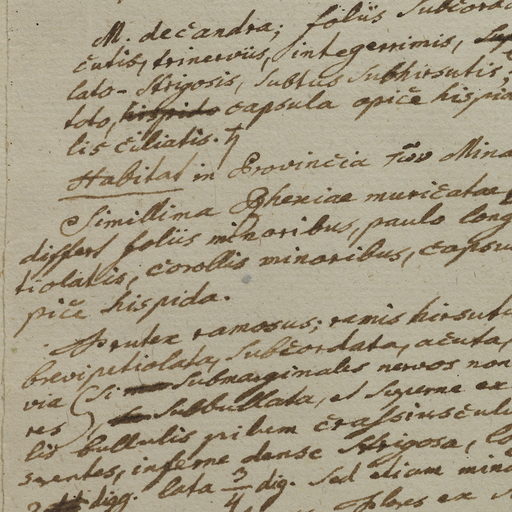 M. decandra; foliis subcorda
cutis, trinerviis, integerrimis, sup
lato-strigosis, subtus subhirsutis;
toto, hispido capsula apice hispid
lis ciliatis. ♄
Habitat in Provincia Mina
Simillima Rhexiae muricatae
differt foliis minoribus, paulo long
tiolatis, corollis minoribus, capsu
pice hispida.
Frutex ramosus; ramis hirsut
brevipetiolata, subcordata, acuta,
via (si submarginales nervos non
res) subbullata, et superne ex
lis bullulis pilum crassiuscul
serentes, inferne dense strigosa, lo
digg. lata 3/4 dig. sed etiam mino
Flores ex